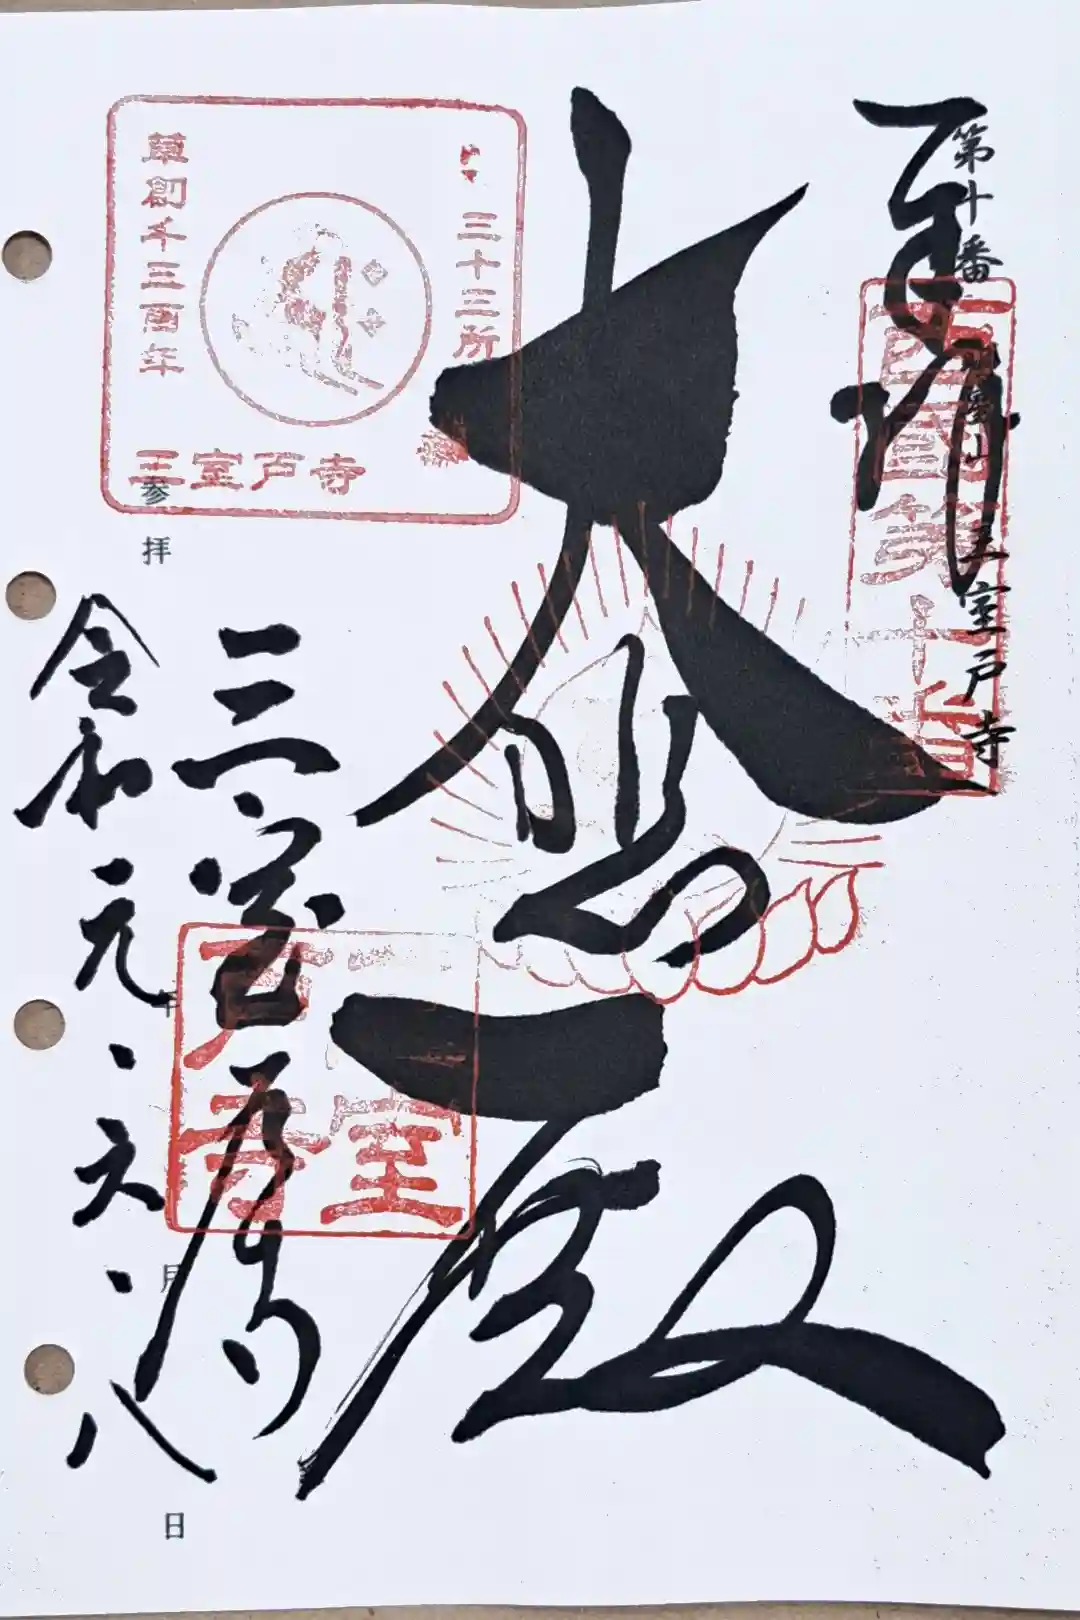 奉拝
第十番
明星山
三室戸寺
西国第十番
大悲殿
三十三所
草創千三百年
三室戸寺
三室戸寺
参拝
令和元、六、八
年
月
日